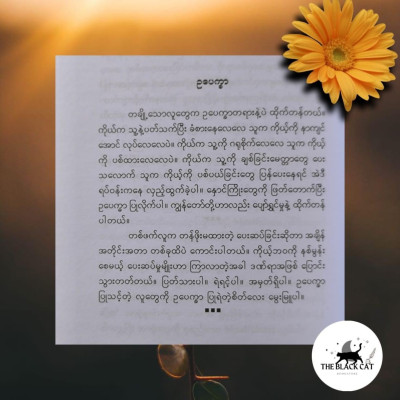 ဥပေက္ခာ
တချို့သောလူတွေက ဥပေက္ခာတရားနဲ့ပဲ ထိုက်တန်တယ်။
ကိုယ်က သူ့နဲ့ပတ်သက်ပြီး ခံစားနေလေလေ သူက ကိုယ့်ကို နာကျင်
အောင် လုပ်လေလေပဲ။ ကိုယ်က သူ့ကို ဂရုစိုက်လေလေ သူက ကိုယ့်
ကို ပစ်ထားလေလေပဲ။ ကိုယ်က သူ့ကို ချစ်ခြင်းမေတ္တာတွေ ပေး
သလောက် သူက ကိုယ့်ကို ပစ်ပယ်ခြင်းတွေ ပြန်ပေးနေရင် အဲဒီ
ရပ်ဝန်းကနေ လှည့်ထွက်ခဲ့ပါ။ နှောင်ကြိုးတွေကို ဖြတ်တောက်ပြီး
ဥပေက္ခာ ပြုလိုက်ပါ။ ကျွန်တော်တို့ဟာလည်း ပျော်ရွှင်မှုနဲ့ ထိုက်တန်
ပါတယ်။
တစ်ဖက်လူက တန်ဖိုးမထားတဲ့ ပေးဆပ်ခြင်းဆိုတာ အချိန်
အတိုင်းအတာ တစ်ခုထိပဲ ကောင်းပါတယ်။ ကိုယ့်ဘဝကို နစ်မွန်း
စေမယ့် ပေးဆပ်မှုမျိုးဟာ ကြာလာတဲ့အခါ ဒဏ်ရာအဖြစ် ပြောင်း
သွားတတ်တယ်။ ပြတ်သားပါ။ ရဲရင့်ပါ။ အမှတ်ရှိပါ။ ဥပေက္ခာ
ပြုသင့်တဲ့ လူတွေကို ဥပေက္ခာ ပြုရဲတဲ့စိတ်လေး မွေးမြူပါ။
THE BLACK CAT